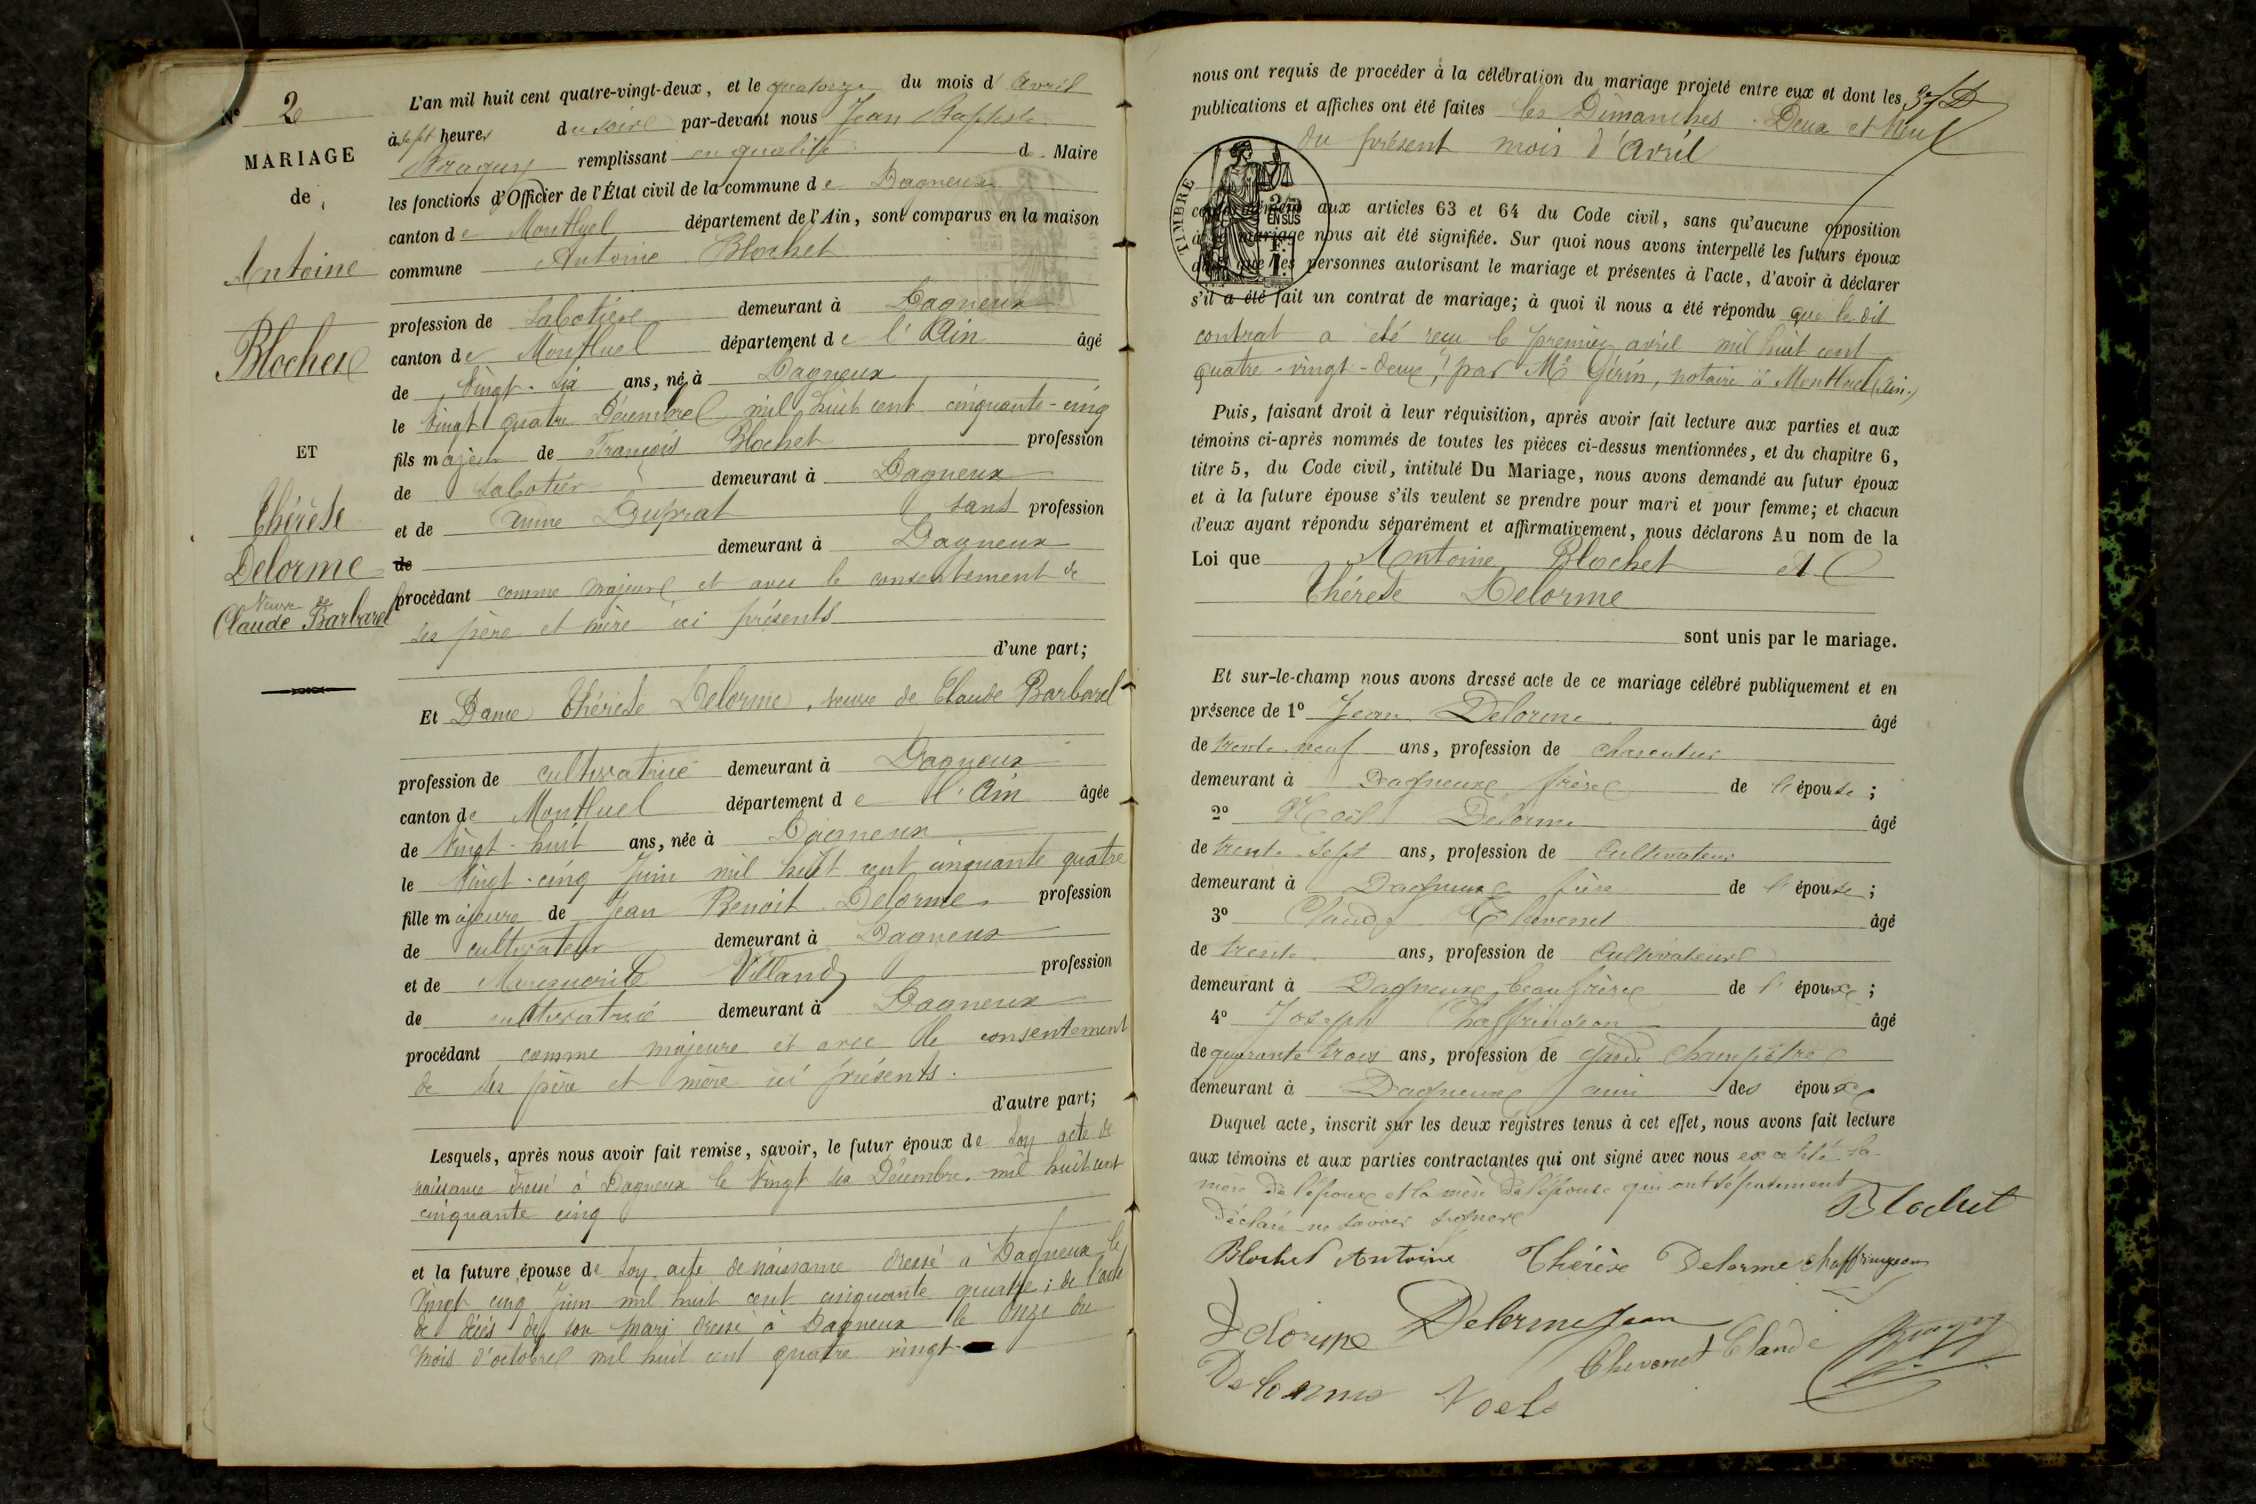 N° 2
MARIAGE
de
Antoine
Blochet
ET
Thérèse
Delorme
Veuve de
Claude Barbarel
L'an mil huit cent quatre-vingt-deux, et le quatorze du mois d'Avril
à sept heures du soir par-devant nous Jean Baptiste
remplissant en qualité de Maire
les fonctions d'Officier de l'État civil de la commune de Dagneux
canton de Montluel département de l'Ain, sont comparus en la maison
commune Antoine Blochet
profession de sabotier demeurant à Dagneux
canton de Montluel département de l'Ain âgé
de vingt-six ans, né à Dagneux
le vingt quatre Décembre mil huit cent cinquante-cinq
fils majeur de François Blochet profession
de sabotier demeurant à Dagneux
et de Anne Duprat sans profession
de demeurant à Dagneux
procédant comme majeur et avec le consentement de
ses père et mère ici présents
d'une part;
Et Dame Thérèse Delorme, veuve de Claude Barbarel
profession de cultivatrice demeurant à Dagneux
canton de Montluel département de l'Ain âgée
de vingt-huit ans, née à Dagneux
le vingt-cinq Juin mil huit cent cinquante quatre
fille majeure de Jean Benoit Delorme profession
de cultivateur demeurant à Dagneux
et de Marguerite Villand profession
de cultivatrice demeurant à Dagneux
procédant comme majeure et avec le consentement
de ses père et mère ici présents.
d'autre part;
Lesquels, après nous avoir fait remise, savoir, le futur époux de son acte de
naissance dressé à Dagneux le vingt six Décembre mil huit cent
cinquante cinq
et la future épouse de son acte de naissance dressé à Dagneux le
vingt cinq Juin mil huit cent cinquante quatre; de l'acte
de décès de son mari dressé à Dagneux le onze du
mois d'octobre mil huit cent quatre vingt
nous ont requis de procéder à la célébration du mariage projeté entre eux et dont les
publications et affiches ont été faites les Dimanches Deux et Neuf
du présent mois d'Avril
TIMBRE
2/10
EN SUS
1 F.
conformément aux articles 63 et 64 du Code civil, sans qu'aucune opposition
à ce mariage nous ait été signifiée. Sur quoi nous avons interpellé les futurs époux
ainsi que les personnes autorisant le mariage et présentes à l'acte, d'avoir à déclarer
s'il a été fait un contrat de mariage; à quoi il nous a été répondu que le dit
contrat a été reçu le premier avril mil huit cent
quatre-vingt-deux, par Me Gérin, notaire à Montluel (Ain.)
Puis, faisant droit à leur réquisition, après avoir fait lecture aux parties et aux
témoins ci-après nommés de toutes les pièces ci-dessus mentionnées, et du chapitre 6,
titre 5, du Code civil, intitulé Du Mariage, nous avons demandé au futur époux
et à la future épouse s'ils veulent se prendre pour mari et pour femme; et chacun
d'eux ayant répondu séparément et affirmativement, nous déclarons Au nom de la
Loi que Antoine Blochet et
Thérèse Delorme
sont unis par le mariage.
Et sur-le-champ nous avons dressé acte de ce mariage célébré publiquement et en
présence de 1° Jean Delorme âgé
de trente neuf ans, profession de charpentier
demeurant à Dagneux frère de l'épouse;
2° Noël Delorme âgé
de trente-sept ans, profession de cultivateur
demeurant à Dagneux frère de l'épouse;
3° Claude Thevenet âgé
de trente ans, profession de cultivateur
demeurant à Dagneux beau frère de l'époux;
4° Joseph Chaffringeon âgé
de quarante trois ans, profession de garde champêtre
demeurant à Dagneux ami des époux
Duquel acte, inscrit sur les deux registres tenus à cet effet, nous avons fait lecture
aux témoins et aux parties contractantes qui ont signé avec nous excepté la
mère de l'époux et la mère de l'épouse qui ont séparément
déclaré ne savoir signer
Blochet
Blochet Antoine Thérèse Delorme Chaffringeon
Delorme Delorme Jean
Thevenet Claude
Delorme Noel